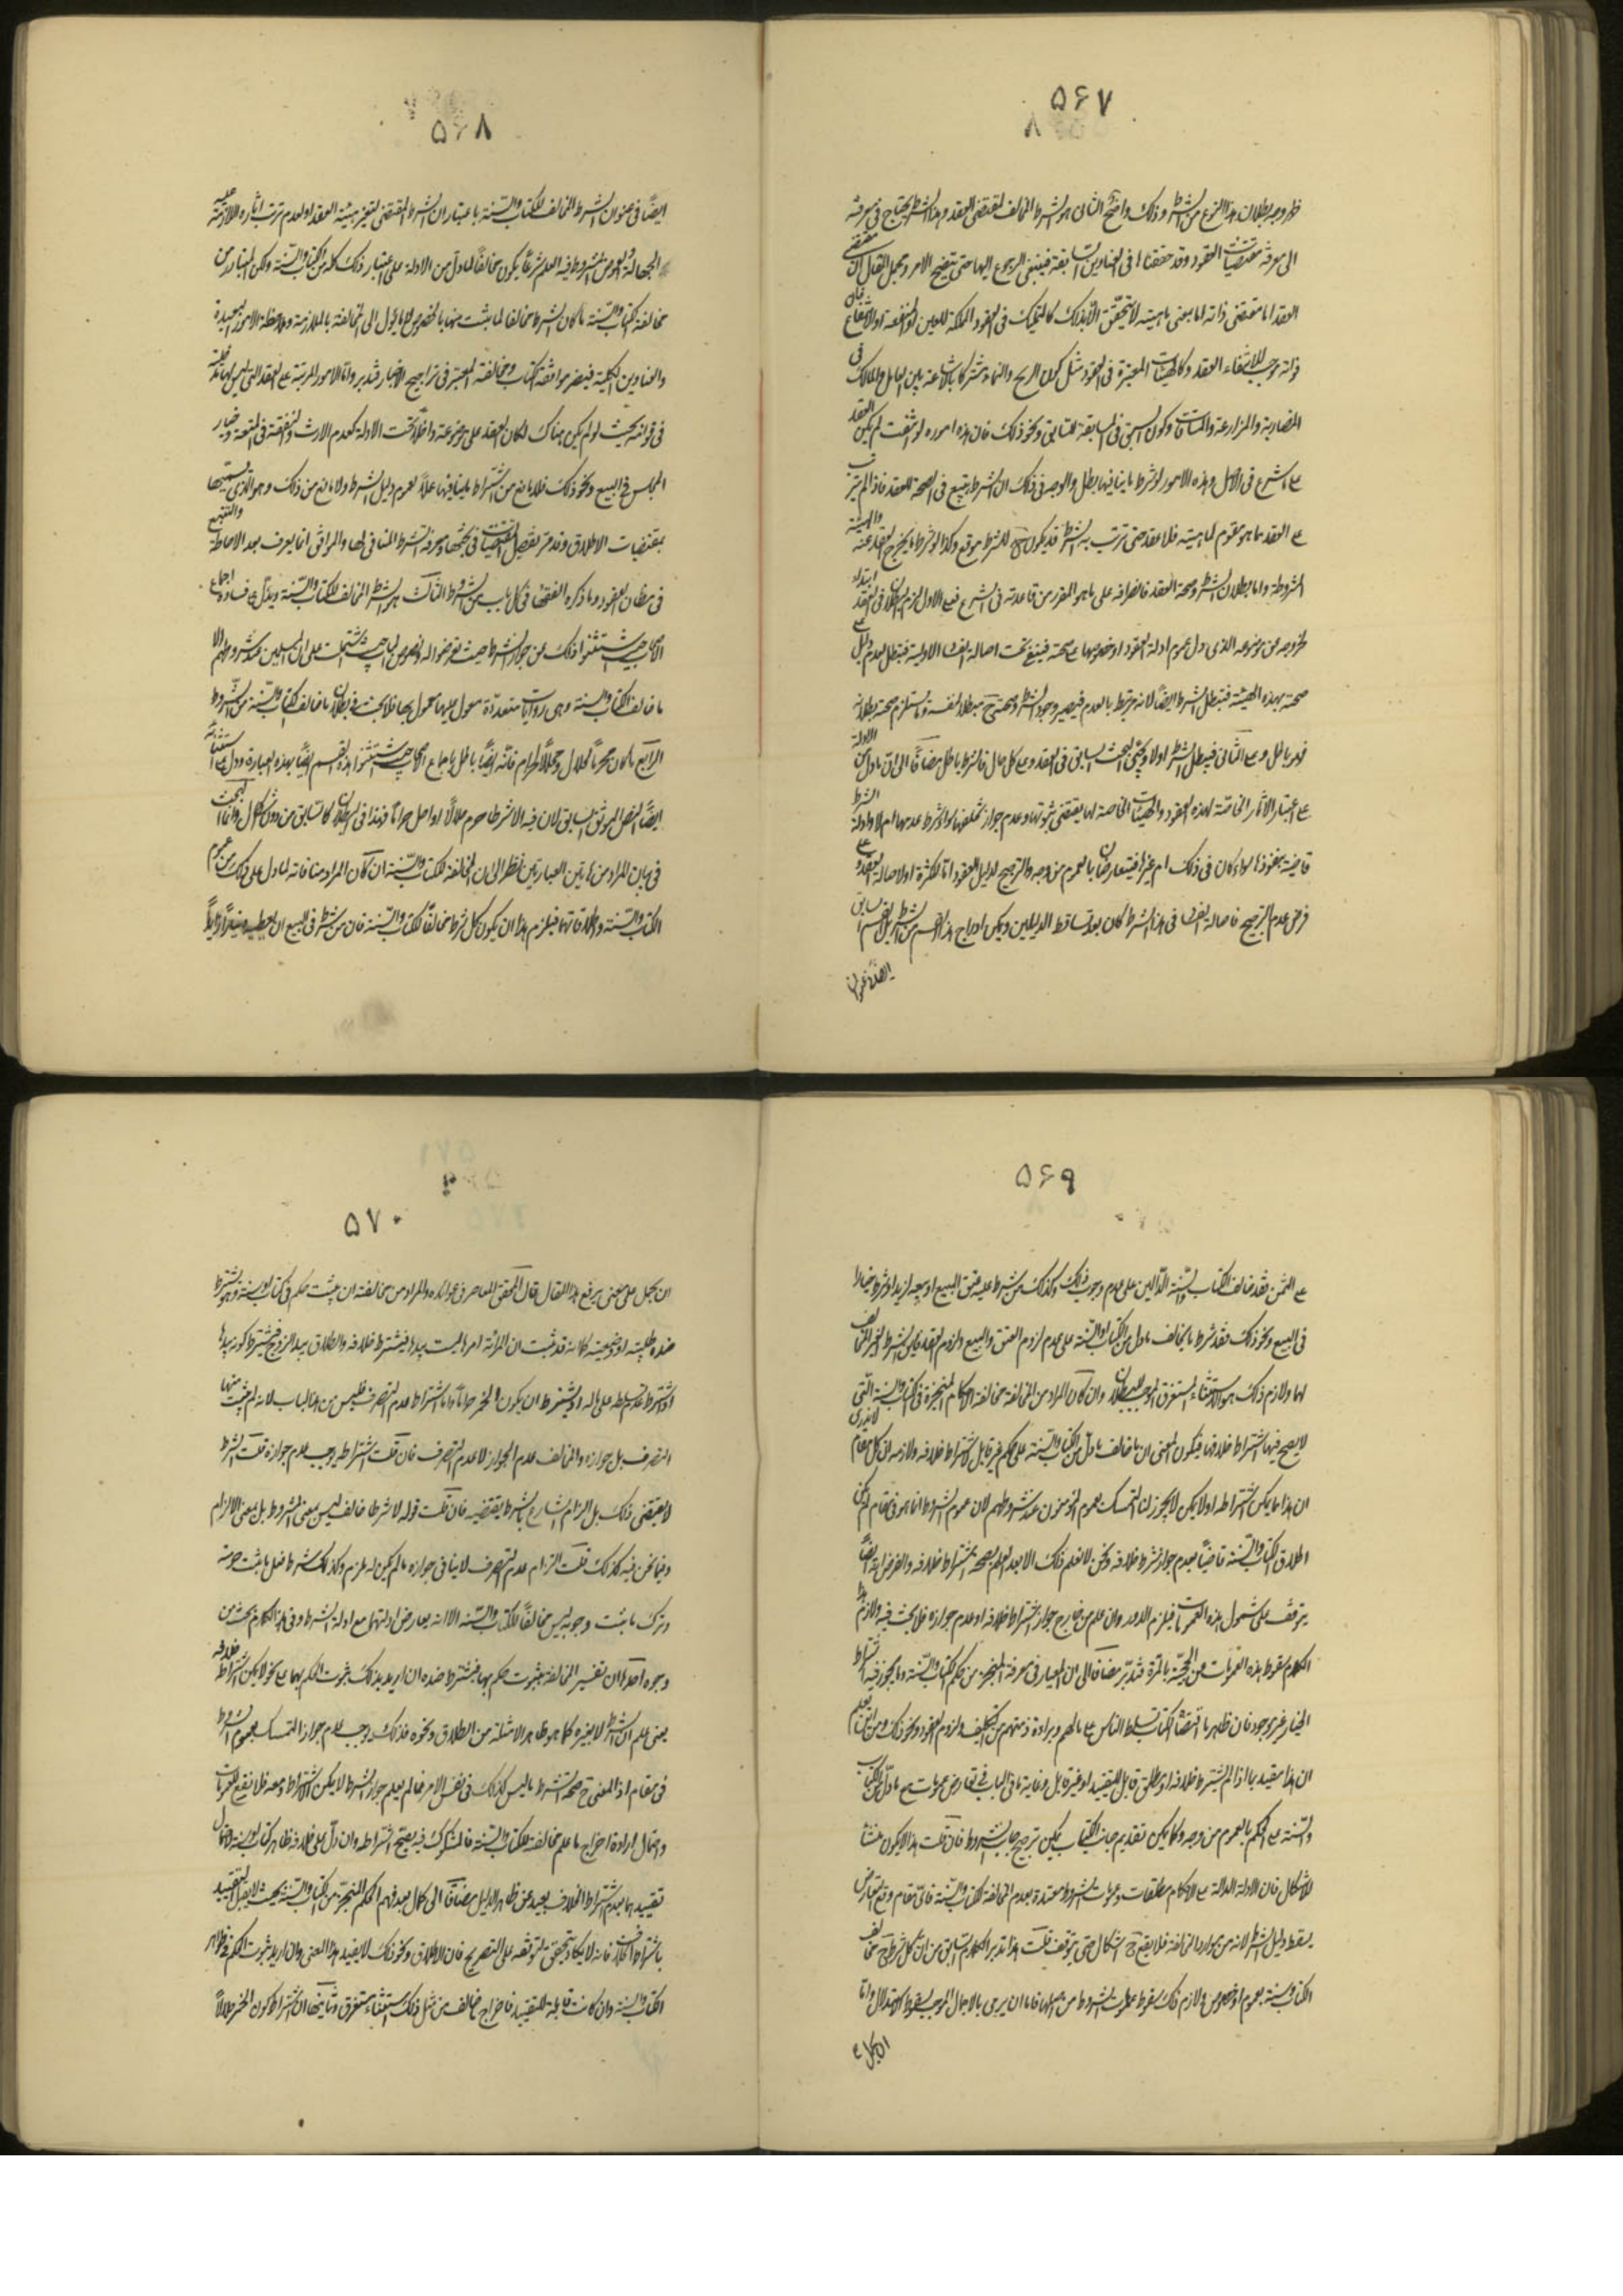 ۵۶۷
وجه بطلان هذا النوع من الشرط وذلك واضح الثانى هو الشرط المخالف لمقتضى العقد وهذا الشرط يحتاج فى معرفته
الى معرفة مقتضيات العقود وقد حققناها فى العناوين السابقة فينبغى الرجوع اليها حتى يتضح الامر ومجمل المقال ان مقتضى
العقد اما مقتضى ذاته اما بمعنى ماهيته لا يتحقق الا بذلك كالتمليك فى العقود المملكة للعين او المنفعة او الانتفاع
موجب لانتفاء العقد وكالهيئات المعتبرة فى العقود مثل كون الربح والنماء مشتركا بالاشاعة بين العامل والمالك فى
المضاربة والمزارعة والمساقات وكون السبق فى المسابقة للسابق ونحو ذلك فان هذه امور لو انتفت لم يكن العقد
فى الاصل وهذه الامور لو شرط ما ينافيها بطل والوجه فى ذلك ان الشرط يتبع فى الصحة للعقد فاذا لم يترتب
على العقد ما هو مقوم لماهيته فلا عقد حتى يترتب به الشرط فلا يكون للشرط موقع وكذا لو شرط ما يخرج العقد عن الهيئة
المشروطة واما بطلان الشرط وصحة العقد فانصرافه على ما هو المقرر من قاعدته فى الشرع ففى الاول لزم البطلان فى العقد ابتداء
لخروجه عن موضوعه الذى دل عموم ادلة العقود او خصوصها على صحته فيبقى تحت اصالة الفساد الاولية فيبطل لعدم دليل على
صحته بهذه الهيئة فيبطل الشرط ايضا لانه مرتبط بالعدم فيصير وجود الشرط وصحته ح مبطلا لنفسه وتستلزم صحته بطلانه
فهو باطل وعلى الثانى فيبطل الشرط اولا ويجئ البحث السابق فى العقد وعلى كل حال فالشرط باطل مضافا الى ان ما دل من الادلة
على اعتبار الاثار الخاصة لهذه العقود والهيئات الخاصة لها يقتضى ثبوتها وعدم جواز تخلفها ولو شرط عدمها ام لا وادلة الشرط
قاضية بنفوذها سواء كان فى ذلك ام غيره فيتعارضان بالعموم من وجه والترجيح لدليل العقود اما لكثرة او لاصالة الفساد وعلى
فرض عدم الترجيح فاصالة الفساد فى هذا الشرط كان بعد تساقط الدليلين ويمكن ادراج هذا القسم من الشرط فى القسم السابق
ايضا فى عنوان
۵۶۸
ايضا فى عنوان الشرط المخالف للكتاب والسنة باعتبار ان الشرط المقتضى لتغير هيئة العقد او لعدم ترتب اثاره اللازمة عليه
الجهالة فى العوض المشروط فيه العلم شرعا يكون مخالفا لما دل من الادلة على اعتبار ذلك كله من الكتاب والسنة ولكن المتبادر من
مخالفة الكتاب والسنة ما كان الشرط مخالفا لما يثبت منها بالخصوص لا ما يؤل الى المخالفة بالملازمة وملاحظة الامور البعيدة
والعناوين الكلية فينصرف موافقة الكتاب ومخالفته المعتبر فى تراجيح الاخبار فتدبر واما الامور المرتبة على العقد التى ليس لها مدخلية
فى قوامه بحيث لو لم يكن هناك لكان العقد على موضوعه داخلا تحت الادلة كعدم الارث والنفقة فى المتعة وخيار
المجلس فى البيع ونحو ذلك فلا مانع من اشتراط ما ينافيها عملا لعموم دليل الشرط ولا مانع من ذلك وهو الذى يسميها
بمقتضيات الاطلاق وقد مر تفصيل المقتضيات فى بحثها ومعرفة الشرط المنافى لها والموافق انما يعرف بعد الاحاطة والتتبع
فى مظان العقود وما ذكره الفقهاء فى كل باب من الشروط الثالث هو الشرط المخالف للكتاب والسنة ويدل على فساده اجماع
الاصحاب حيث استثنوا ذلك من جواز الشرط حيث تعرضوا له والنصوص الباب اشتملت على ان المسلمين عند شروطهم الا
ما خالف الكتاب والسنة وهى روايات متعددة معول عليها معمول بها فلا بحث فى بطلان ما خالف الكتاب والسنة من الشروط
الرابع ما كان محرما لحلال ومحللا لحرام فانه ايضا باطل باجماع الاصحاب حيث استثنوا هذا القسم ايضا بهذه العبارة ودل على استثنائه
ايضا النص الموثق السابق لان فيه الا شرطا حرم حلالا او احل حراما فهذا فى البطلان كالسابق من دون اشكال وانما البحث
فى بيان المراد من هاتين العبارتين نظرا الى ان المخالفة للكتاب والسنة ان كان المراد منافاته لما دل على ذلك من عموم
الكتاب والسنة واطلاقاتهما فيلزم هذا ان يكون كل شرط مخالفا للكتاب والسنة فان من شرط فى البيع ان يعطيه
۵۶۹
على الثمن فقد خالف الكتاب والسنة الدالين على عدم وجوب ذلك وكذلك من شرط عليه عتق المبيع او بيعه لزيد او شرط خيارا
فى البيع ونحو ذلك فقد شرط ما يخالف ما دل من الكتاب او السنة على عدم لزوم العتق والبيع ولزوم العقد فاين الشرط الغير المخالف
لهما ولازم ذلك هو الاستثناء المستغرق الموجب للبطلان وان كان المراد من المخالفة مخالفة الاحكام المنجزة فى الكتاب والسنة التى
لا يصح فيها اشتراط خلافها فيكون المعنى ان ما خالف ما دل من الكتاب والسنة على حكم غير قابل لاشتراط خلافه ولازمه ان كل مقام لا ندرى
ان هذا مما يمكن اشتراطه او لا يمكن لا يجوز لنا التمسك بعموم المؤمنون عند شروطهم لان عموم الشروط انما هو فى مقام لم يكن
اطلاق الكتاب والسنة قاضيا بعدم جواز شرط خلافه ونحن لا نعلم ذلك الا بعد العلم بصحة اشتراط خلافه والفرض انه ايضا
يتوقف على شمول هذه العمومات فيلزم الدور وان علم من خارج جواز اشتراط خلافه او عدم جوازه فلا بحث فيه ولازم هذا
الكلام سقوط هذه العمومات من الحجية بالمرة فتدبر مضافا الى ان المعيار فى معرفة المنجز من حكم الكتاب والسنة وما يجوز فيه اشتراط
الخيار غير موجود فان ظاهر ما اقتضاء الكتاب تسلط الناس على مالهم وبراءة ذمتهم من التكليف ولزوم العقود ونحو ذلك ومن اين نعلم
ان هذا مقيد بما اذا لم يشترط خلافه او مطلق قابل للتقييد او غير قابل وغاية ما فى الباب تعارض عمومات ما دل من الكتاب
والسنة على الحكم بالعموم من وجه وكما يمكن تقديم جانب الكتاب يمكن ترجيح جانب الشروط فان قلت هذا لا يكون منشأ
للاشكال فان الادلة الدالة على الاحكام مطلقات وعمومات الشروط مقيدة بعدم المخالفة للكتاب والسنة فاى مقام وقع التعارض
يسقط دليل الشرط لانه من موارد المخالفة فلا يقع ح اشكال حتى يتوقف قلت هذا تدبر الكلام السابق من ان كل شرط ح مخالف
الكتاب والسنة بعموم او خصوص ولازم ذلك سقوط عمومات الشروط من اصلها فاما ان يرمى بالاجمال الموجب لسقوط الاستدلال واما
ان يحمل على
۵۷۰
ان يحمل على معنى يرفع هذا المقال قال المحقق المعاصر فى عوائده والمراد من مخالفته ان يثبت حكم فى كتاب او سنة وهو يشترط
ضده وطلبيته او وضعيته كما انه قد ثبت ان المرئة امرها ليست بيدها فيشترط خلافه والطلاق بيد الزوج فيشترط كونه بيدها
او اشترط عدم تسلطه على ماله او يشترط ان يكون الخمر حلالا واما اشتراط عدم التصرف فليس من هذا الباب لانه لم يثبت منهما
التصرف بل جوازه والمخالف عدم الجواز لا عدم التصرف فان قلت اشتراطه يوجب عدم جوازه قلت الشرط
لا يقتضى ذلك بل الزام الشارع بالشرط يقتضيه فان قلت قوله الا شرطا خالف ليس بمعنى المشروط بل بمعنى الالزام
وفيما نحن فيه كذلك قلت الزام عدم التصرف لا ينافى جوازه ما لم يكن له ملزم وكذلك شرط فعل ما ثبت حرمته
وترك ما ثبت وجوبه ليس مخالفا للكتاب والسنة الا انه يعارض ادلتهما مع ادلة الشرط وفى هذا الكلام بحث من
وجوه احدها ان تفسير المخالفة بثبوت حكم بهما فيشترط ضده ان اريد بذلك ثبوت الحكم بهما على نحو لا يمكن اشتراط خلافه
يعنى علم ان الشرط لا يغيره كما هو ظاهر الامثلة من الطلاق ونحوه فذلك يوجب عدم جواز التمسك بعموم الشروط
فى مقام اذ المعنى ح صحة الشرط ما ليس كذلك فى نفس الامر فما لم يعلم جواز الشرط لا يمكن الاشتراط ومعه فلا ينفع العمومات
واحتمال ارادة اخراج ما علم مخالفته للكتاب والسنة فالمشكوك فيه يصح اشتراطه وان دل على خلافه ظاهر كتاب او سنة لاحتمال
تقييدهما بعدم اشتراط الخلاف بعيد عن ظاهر الدليل مضافا الى كمال بعد فهم الحكم المنجز من الكتاب والسنة بحيث لا يقبل التقييد
باشتراط الخلاف فانه لا يكاد يتحقق لتوقفه على التصريح فان الاطلاق ونحو ذلك لا يفيد هذا المعنى وان اريد ثبوت الحكم فى ظاهر
الكتاب والسنة وان كانت قابلة للتقييد فاخراج ما خالف من مثل ذلك استثناء مستغرق وثانيها ان اشتراط كون الخمر حلالا